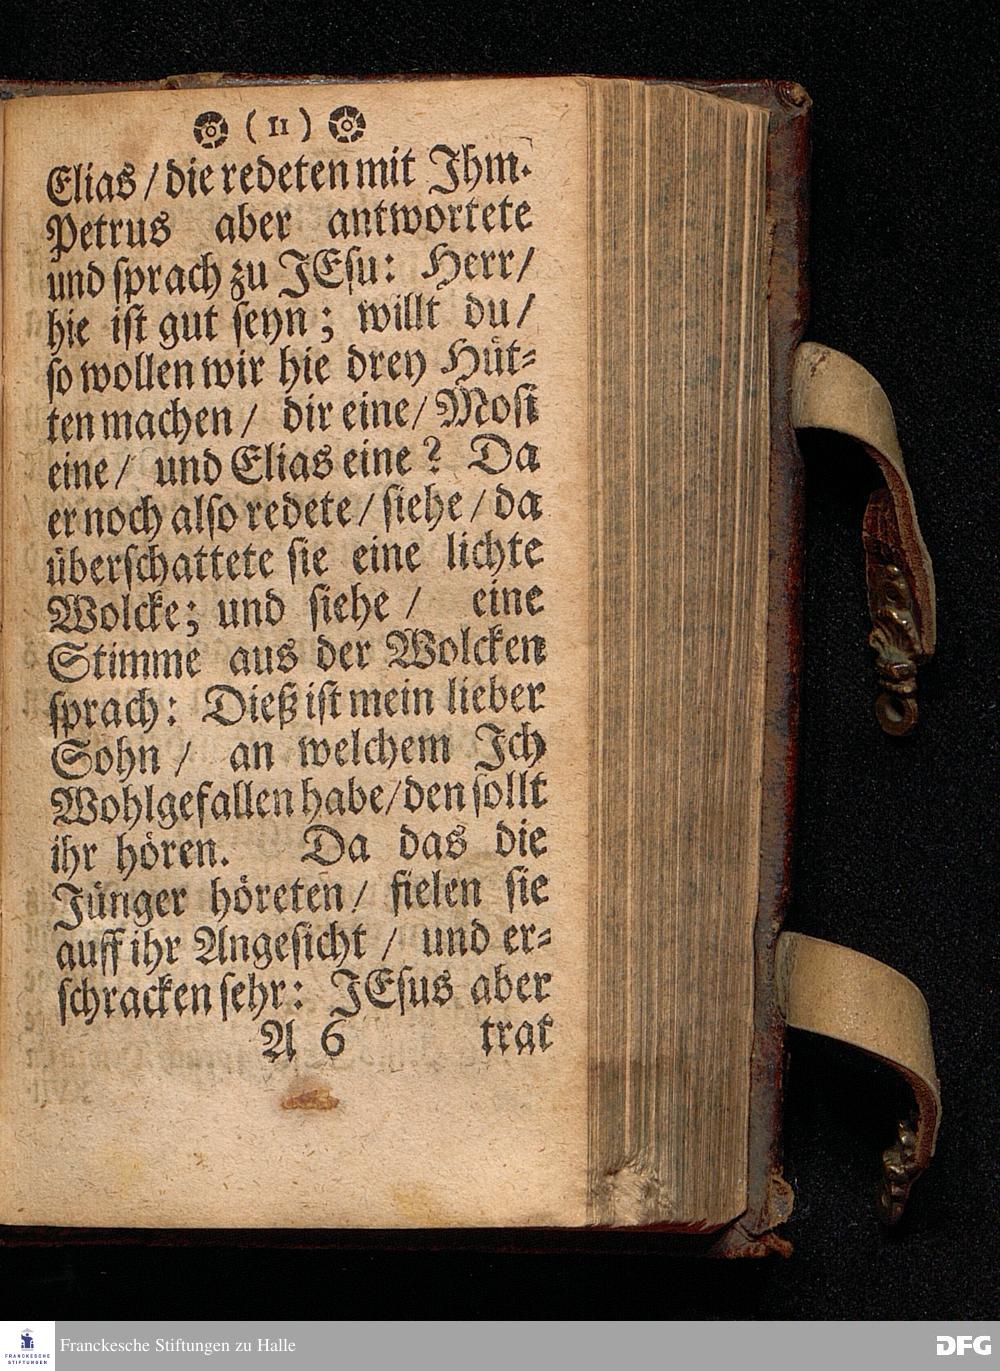 ( 11 )
Elias / die redeten mit Jhm.
Petrus aber antwortete
und sprach zu JEsu: Herr /
hie ist gut seyn; willt du /
so wollen wir hie drey Hüt-
ten machen / dir eine / Mosi
eine / und Elias eine? Da
er noch also redete / siehe / da
überschattete sie eine lichte
Wolcke; und siehe / eine
Stimme aus der Wolcken
sprach: Dieß ist mein lieber
Sohn / an welchem Jch
Wohlgefallen habe / den sollt
ihr hören. Da das die
Jünger höreten / fielen sie
auff ihr Angesicht / und er-
schracken sehr: JEsus aber
A 6 trat
FRANCKESCHE
STIFTUNGEN
Franckesche Stiftungen zu Halle
DFG